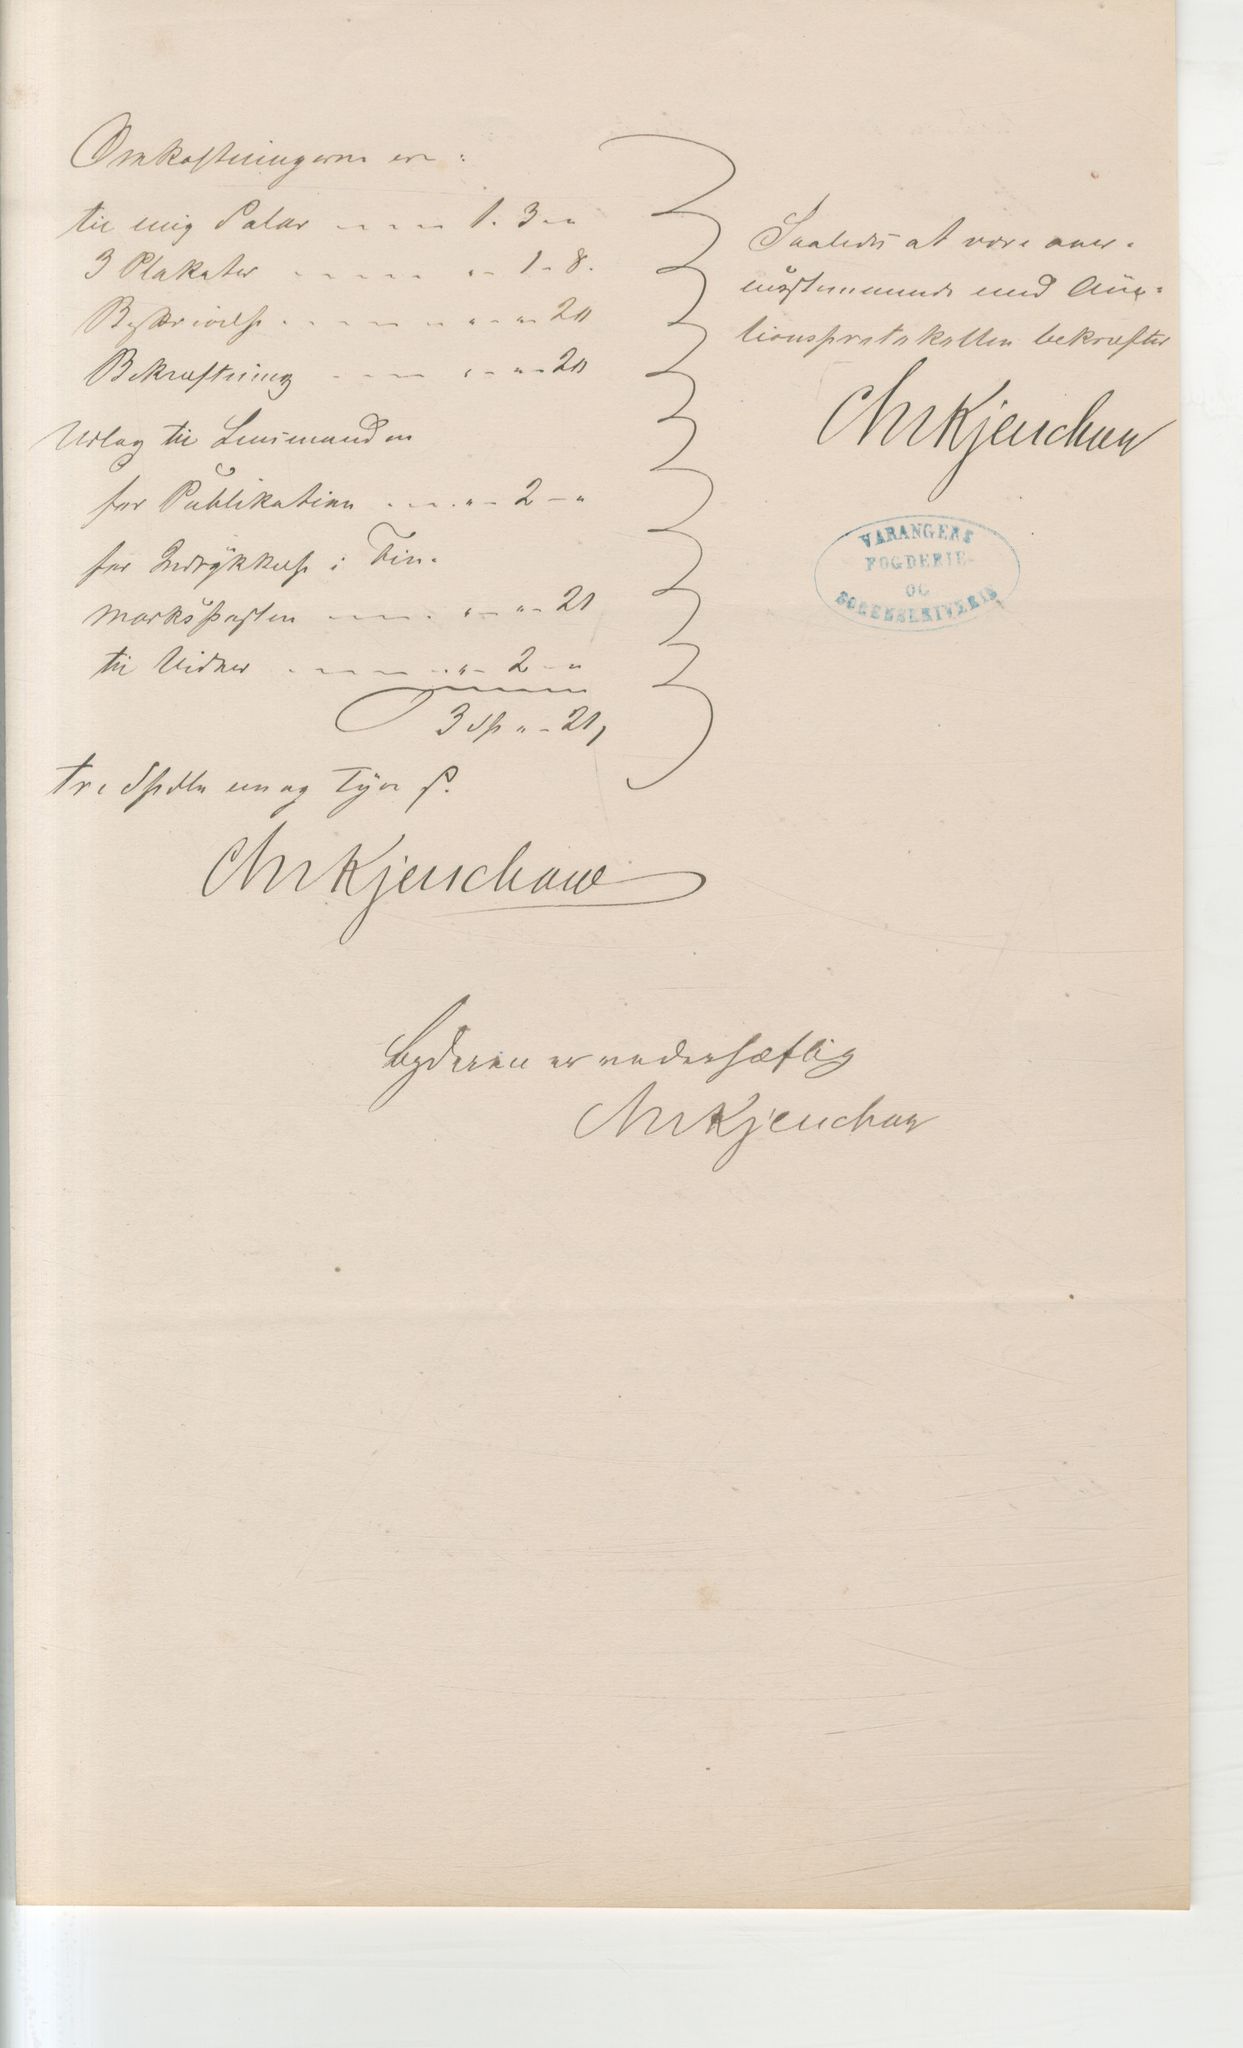 Omkostningerne ere:
til mig Salær ---- 1. 3 - "
3 Plakater ----- " - 1 - 8.
Beskrivelse ------ " - " - 20
Bekræftning ---- " - " - 20
Udlæg til Lensmanden
for Publikation ---- " - 2 - "
for Indrykkelse i Fin-
marksposten ---- " - " - 21
til Vidner ----- " - 2 - "
3 Sp " - 21,
tre Spdlr en og Tyve ß.
Chr Kjerschow
Saaledes at være over-
ensstemmende med Auk-
tionsprotokollen bekræfter
Chr Kjerschow
VARANGERS
FOGDERIE-
OG
SORENSKRIVERIE
Byderen er vederhæftig
Chr Kjerschow